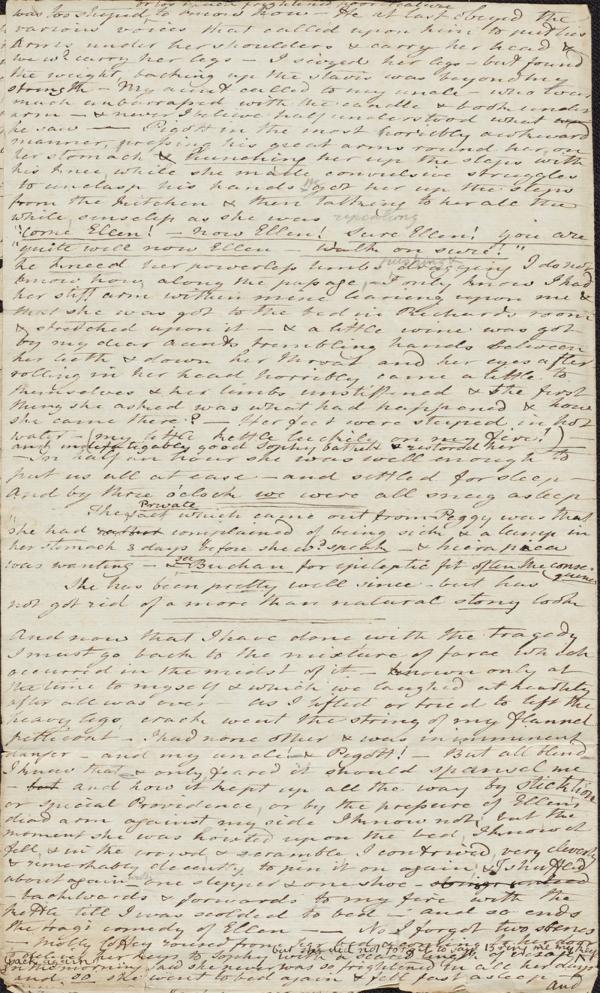 or too much frightened poor creature
was too stupid to know how – He at last obeyed the
various voices that called upon him to put his
Arms under her shoulders & carry her head &
we wd carry her legs – I seized her legs – but found
the weight, backing up the stairs was beyond my
strength – My aunt called to my uncle – who was
much embarrassed with the candle & book under
arm – & never I believe half understood what
he saw — Pigott in the most horribly awkward
manner, pressing his great arms round her, on
her stomach & hunching her up the steps with
his knee while she made convulsive struggles
to unclasp his hands We got her up the steps
from the kitchen & then talking to her all the
while senseless as she was repeating
"Come Ellen! – now Ellen! Sure Ellen! you are
"quite well now Ellen – Walk on sure!"
he kneed her powerless limbs pushing & dragging I do not
know how, along the passage, I only know I had
her stiff arm within mine leaning upon me &
that she was got to the bed in Richard's room
& stretched upon it – & a little wine was got
by my dear Aunt's trembling hands between
her teeth & down her throat and her eyes after
rolling in her head horribly came a little to
themselves & her limbs unstiffened & the first
thing she asked was what had happened & how
she came there? – Her feet were steeped in hot
water – (my little kettle luckily on my fire!) –
and indefatigable good Sophy bathed & restored her
– In half an hour she was well enough to
put us all at ease – and settled for sleep –
And by three o'clock we were all snug asleep
Private
The fact which came out from Peggy was that
"she had complained of being sick & a lump in
her stomach 3 days before she wd speak – & hiera picra
was wanting – See Buchan for epileptic fit often the conse-
quence
She has been pretty well since – but has
not got rid of a more than natural stony look
And now that I have done with the tragedy
I must go back to the mixture of farce which
occurred in the midst of it – known only at
the time to myself & which we laughed at heartily
after all was over – As I lifted or tried to lift the
heavy legs, crack went the string of my flannel
petticoat – I had none other & was in imminent
danger – and my uncle! & Pigott! – But all blind
I knew that – & only feared it should spancel me
– but and how it kept up all the way by stiction
or special Providence, or by the pressure of Ellen's
dead arm against my side I know not, but the
moment she was hoisted up upon the bed, I know it
fell, & in the crowd & scramble I contrived very cleverly
& remarkably decently to pin it on again, & I shuffled
about again – one slipper & one shoe –
– backwards & forwards to my fire with the
kettle till I was scolded to bed – and so ends
the tragi comedy of Ellen – – No I forgot two scenes
– Molly roused from
her keys to Sophy with a scared
but she did not forget to say
back again
in the morning, said she never was so frightened in all her days
and so she went to bed again & fell fast asleep
and